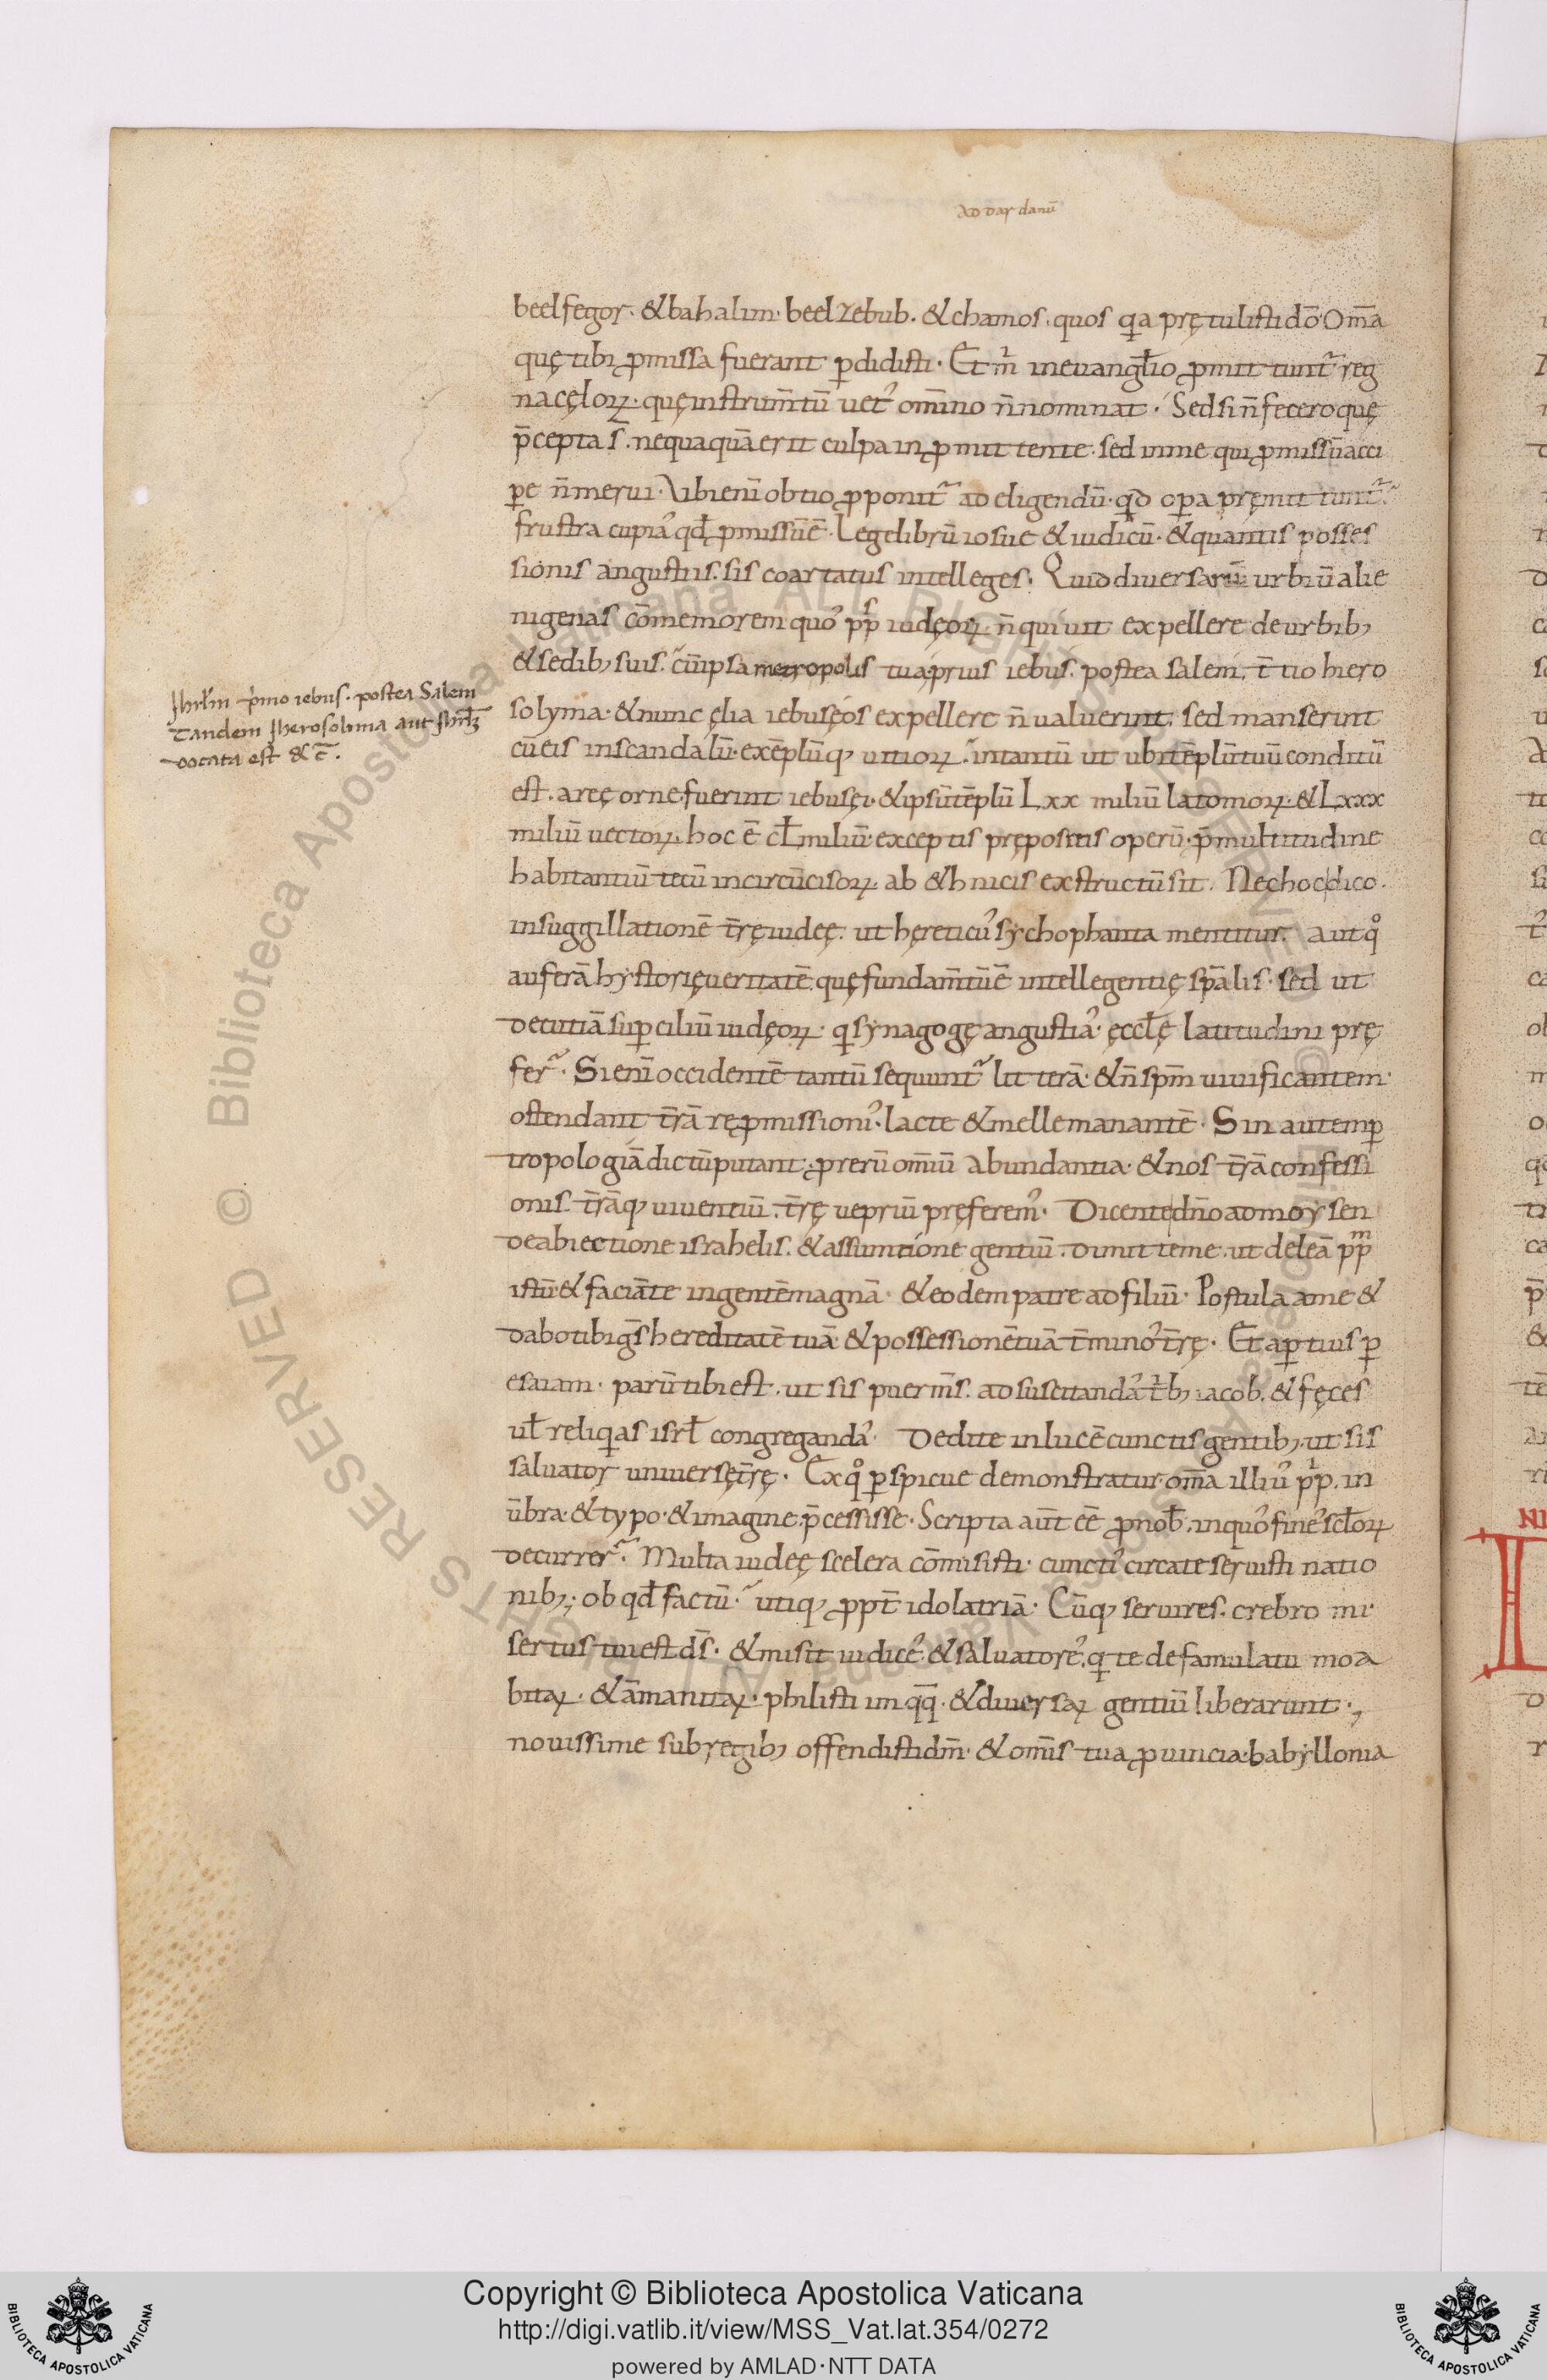 ad dardanū
beelfegor. & bahalim. beelzebub. & chamos. quos qia prętulisti dō. Om̄a
quę tibi ꝓmissa fuerant p̱didisti. Et m̓ in euangl̄io ꝓmittunt᷑ reg
na cęloꝝ. quę instrum̄tū uet᾽ om̄ino n̄ nominat. Sed si n̄ fecero quę
p̄cepta s̄. nequaquā erit culpa in ꝓmittente. sed in me qui ꝓmissū acci
ꝑe n̄ merui. Vbi eni᷑ obtio ꝓponit᷑ ad eligendū. qd oꝑa pręmittunt᷑
frustra cupia᾽ qd̄ ꝓmissū ē. Lege librū iosue & iudicū. & quantis posses
sionis angustiis. sis coartatus intelleges. Quid diuersarū urbiū alie
nigenas cōmemorem quo᾽ pp̄s iudęoꝝ n̄ quiuit expellere de urbib;
& sedib; suis. cū ipsa metropolis tua. prius iebus. postea salem. t̄tio hiero
solyma. & nunc ęlia iebusęos expellere n̄ ualuerint. sed manserint
cū eis in scandalū. exēplūq; uitioꝝ. intantū ut ubi tēplū tuū conditū
est. areę orne. fuerint iebusęi. & ipsū tēplū Lxx miliū latomoꝝ. & Lxxx
miliū uectoꝝ. hoc ē cL miliū. exceptis pręposītis operū. p̄ multitudine
habitantiū tecū incircūcisoꝝ. ab &hnicis exstructū sit. Nec hoc dico.
in suggillationē tr̄ę iudeę. ut hęreticu᾽ sychophanta mentitur. aut qo̊
auferā hystorię ueritatē. quę fundam̄tū ē intellegentię spālis. sed ut
decutiā suꝑciliū iudęoꝝ. qi synagogę angustia᾽. ęccl̄ę latitudini prę
fer᷑. Si eni᷑ occidentē tantū sequunt᷑ litterā. & n̄ spm̄ uiuificantem.
ostendant tr̄ā repꝓmissioni᾽. lacte & melle manantē. Sin autem ꝑ
tropologiā dictū putant. ꝓ rerū om̄iū abundantia. & nos tr̄ā confessi
onis. tr̄āq; uiuentiū. tr̄ę uepriū pręferem᾽. Dicente dn̄o ad moysen
de abiectione israhelis. & assumtione gentiū. dimitte me. ut deleā pp̄m
istū. & faciā te in gentē magnā. & eodem patre ad filiū. Postula a me &
dabo tibi gs̄ hereditatē tuā. & possessionē tuā t̄mino᾽ tr̄ę. Et aꝑtius ꝑ
esaiam. parū tibi est. ut sis puer m̄s. ad suscitanda᾽ tb̓; iacob. & fęces
ul̄ reliqias isrl̄ congreganda᾽. Dedi te in lucē cunctis gentib;. ut sis
saluator uniuersę tr̄ę. Ex qo̊ ꝑspicue demonstratur. om̄a illiu᾽ pp̓li. in
ūbra. & typo. & imagine. p̄cessisse. Scripta aūt ēē ꝓ nob̄. in quo᾽ fine᾽ scl̄oꝝ
decurrer᷑. Multa iudeę scelera cōmisisti. cuncti᾽ circa te seruisti natio
nib;. ob qd̄ factū. utiq; ꝓpt̄ idolatriā. Cūq; seruires. crebro mi
sertus tui est ds̄. & misit iudice᾽. & saluatore᾽. qi te de famulatu moa
bitaꝝ. & āmanitaꝝ. philistiim qq̄. & diuersaꝝ gentiū liberarunt.
nouissime sub regib; offendisti dm̄. & omīs tua ꝓuincia. babyllonia
Jhrlm̄ p̓mo iebus. postea Salem
Tandem Jherosolima aut
vocata est & c̄.
Copyright © Biblioteca Apostolica Vaticana
http://digi.vatlib.it/view/MSS_Vat.lat.354/0272
powered by AMLAD·NTT DATA
BIBLIOTECA APOSTOLICA VATICANA
BIBLIOTECA APOSTOLICA VATICANA